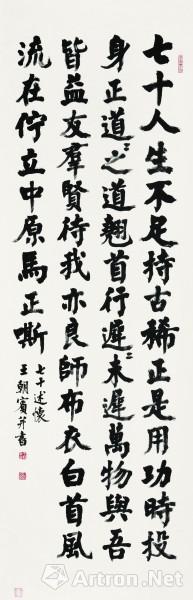 七十人生不足持古稀正是用功時投
身正道道之之道翹首行遲遲未遲萬物與吾
皆益友群賢待我亦良師布衣白首風
流在佇立中原馬正嘶
七十述懷
王朝賓并書
Artron.Net